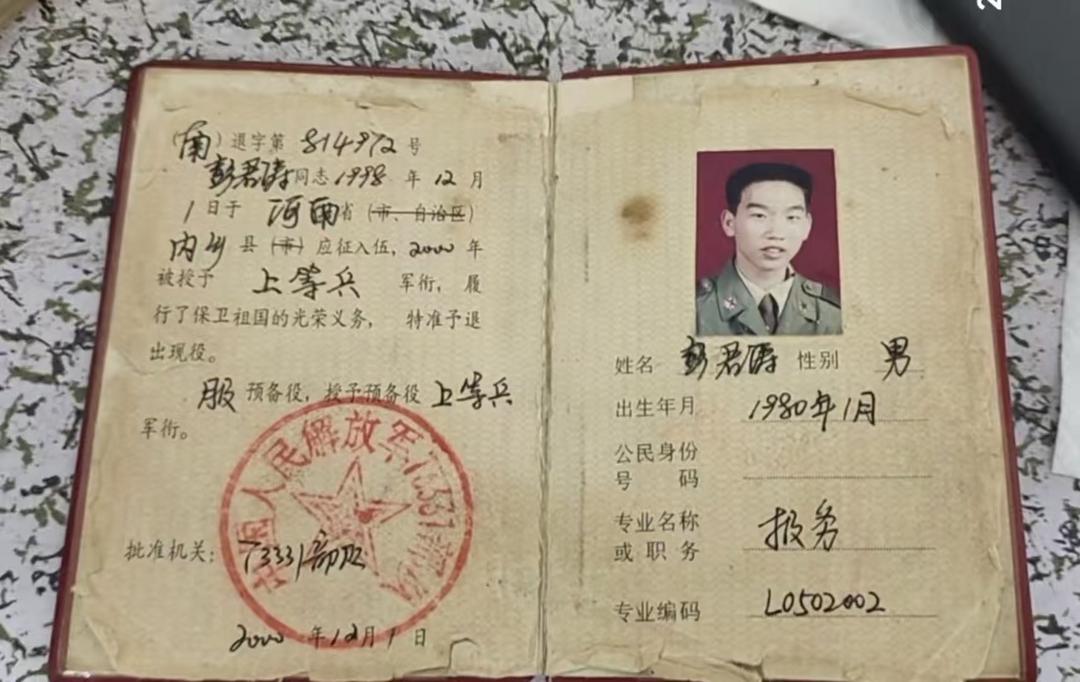 （南）退字第 814972 号
彭君涛同志1998 年 12 月
1 日于 河南省（市、自治区）
内乡 县（市）应征入伍，2000 年
被授予 上等兵 军衔，履
行了保卫祖国的光荣义务， 特准予退
出现役。
服 预备役，授予预备役 上等兵
军衔。
中国人民解放军73331部队
批准机关：73331部队
2000 年12月1日
姓名 彭君涛 性别 男
出生年月 1980年1月
公民身份
号 码
专业名称
或 职 务 报务
专业编码 L0502002